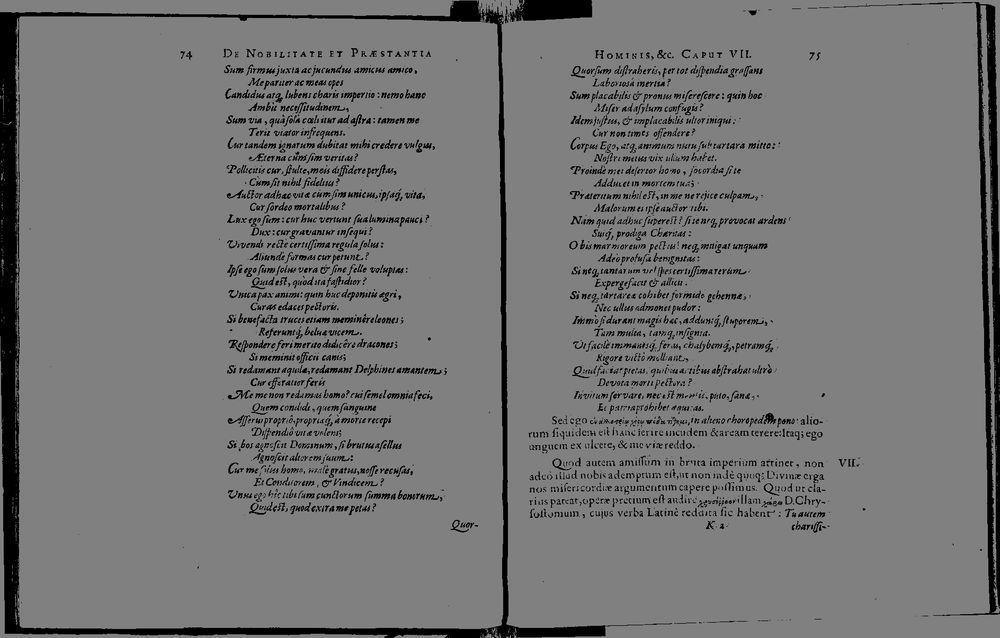 74 DE NOBILITATE ET PRÆSTANTIA
Sum firmus juxta ac jucundus amicus amico,
Me pariter ac meas opes
Candidus atq, lubens charis impertio: nemo hanc
Ambit necessitudinem,
Sum via, quâ solâ cœli itur ad astra: tamen me
Terit viator infrequens.
Cur tandem ignarum dubitat mihi credere vulgus,
Æterna cùm sim veritas?
Pollicitis cur, stulte, meis diffidere perstas,
Cùm sit nihil fidelius?
Auctor ad hæc vitæ cùm sim unicus, ipsaq, vita,
Cur sordeo mortalibus?
Lux ego sum: cur huc vertunt sua lumina pauci?
Dux: cur gravantur insequi?
Vivendi rectè certissima regula solus:
Aliunde formas cur petunt?
Ipse ego sum solus vera & sine felle voluptas:
Quid est, quod ita fastidior?
Unica pax animi: quin huc deponitis ægri,
Curas edaces pectoris.
Si benefacta truces etiam meminêre leones;
Referuntq, belua vicem.
Respondere feri merito didicêre dracones;
Si meminit officii canis;
Si redamant aquilæ, redamant Delphines amantem;
Cur efferatior feris
Me me non redamas homo? cui semel omnia feci,
Quem condidi, quem sanguine
Asserui proprio, propriaq, à morte recepi
Dispendio vitæ volens;
Si bos agnoscit Dominum, si brutus asellus
Agnoscit altorem suum:
Cur me solus homo, malè gratus, nosse recusas,
Et Conditorem, & Vindicem?
Unus ego hîc tibi sum cunctorum summa bonorum,
Quid est, quod extra me petas?
Quor-
HOMINIS, &c. CAPUT VII. 75
Quorsum distraheris, per tot dispendia grassans
Laboriosa inertia?
Sum placabilis & pronus miserescere: quin hoc
Miser ad asylum confugis?
Idem justus, & implacabilis ultor iniqui:
Cur non times offendere?
Corpus Ego, atq, animum nutu sub tartara mitto:
Nostri metus vix ullum habet.
Proinde mei desertor homo, socordia si te
Adducet in mortem tua;
Præteritum nihil est, in me ne rejice culpam,
Malorum es ipse auctor tibi.
Nam quid adhuc superest? si te neq, provocat ardens
Suiq, prodiga Charitas:
O bis marmoreum pectus! neq, mitigat unquam
Adeo profusa benignitas:
Si neq, tantarum vel spes certissima rerum
Expergefacit & allicit.
Si neq, tartareæ cohibet formido gehennæ,
Nec ullus admonet pudor:
Immo si durant magis hæc, adduntq, stuporem,
Tam multa, tamq, insignia.
Ut facilè immanisq, feras, chalybemq, petramq,
Rigore victo molliant,
Quid faciat pietas, quibus artibus abstrahat ultrò
Devota morti pectora?
Invitum servare, nec est mentis, puto, sanæ,
Et patria prohibet æquitas.
Sed ego in alieno choro pedem pono: alio-
rum siquidem est hanc ferire incudem & aream terere: Itaq; ego
unguem ex ulcere, & me viæ reddo.
Quod autem amissum in bruta imperium attinet, non VII.
adeò illud nobis ademptum est, ut non indè quoq; Divinæ erga
nos misericordiæ argumentum capere possimus. Quod ut cla-
rius pateat, operæ pretium est audire illam D. Chry-
sostomum, cujus verba Latinè reddita sic habent: Tu autem
K 2 charissi-